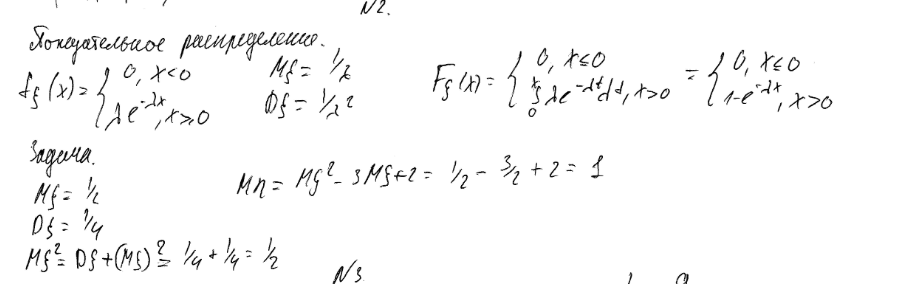 N2.
Показательное распределение.
f_ξ(x) = { 0, x<0 ; λe^{-λx}, x≥0   Mξ = 1/λ   Dξ = 1/λ²   F_ξ(x) = { 0, x≤0 ; ∫₀ˣ λe^{-λt}dt, x>0 = { 0, x≤0 ; 1-e^{-λx}, x>0
Задача.
Mξ = 1/2   Mη = Mξ² - 3Mξ + 2 = 1/2 - 3/2 + 2 = 1
Dξ = 1/4
Mξ² = Dξ + (Mξ)² = 1/4 + 1/4 = 1/2
N3